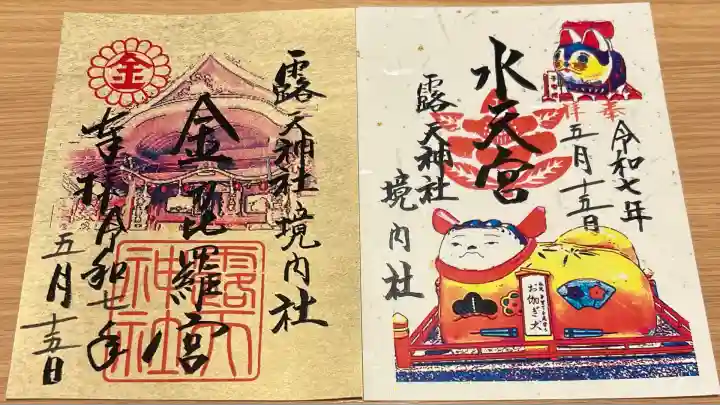 露天神社境内社
金毘羅宮
奉拝令和七年
五月十五日
金
露天
神社
水天宮
露天神社
境内社
奉拝
令和七年
五月十五日
お伽ぎ犬